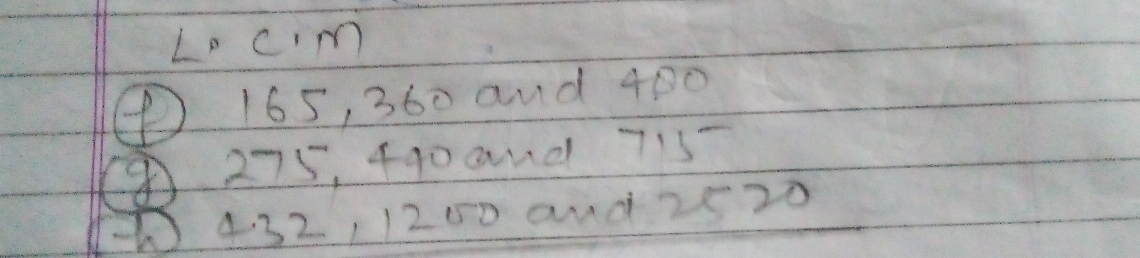 L. C.M
(f) 165, 360 and 480
(g) 275, 440 and 715
(h) 432, 1200 and 2520